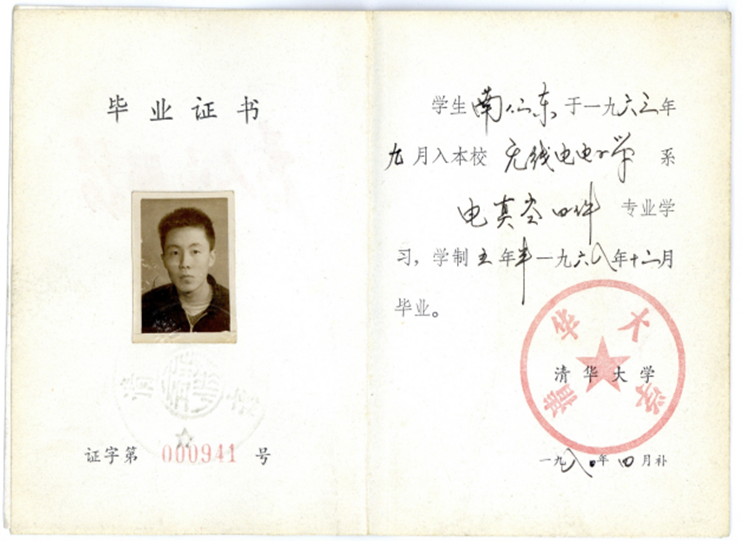 毕业证书
证字第 000941 号
学生南仙东于一九六三年
九月入本校无线电电子学系
电真空器件专业学
习，学制五年半一九六八年十二月
毕业。
清华大学
清华大学
一九八〇年四月补